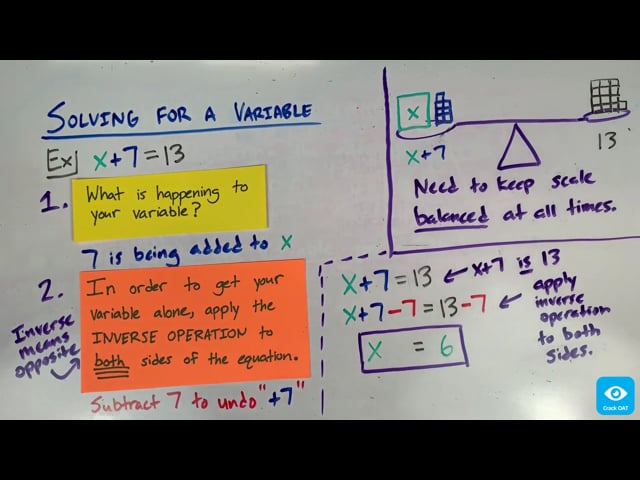 SOLVING FOR A VARIABLE
Ex) x+7=13
1.
What is happening to
your variable?
7 is being added to x
2.
In order to get your
variable alone, apply the
INVERSE OPERATION to
both sides of the equation.
Inverse
means
opposite
Subtract 7 to undo "+7"
x
x+7
13
Need to keep scale
balanced at all times.
x+7=13
x+7 is 13
x+7-7=13-7
apply
inverse
operation
to both
sides.
x = 6
Crack OAT